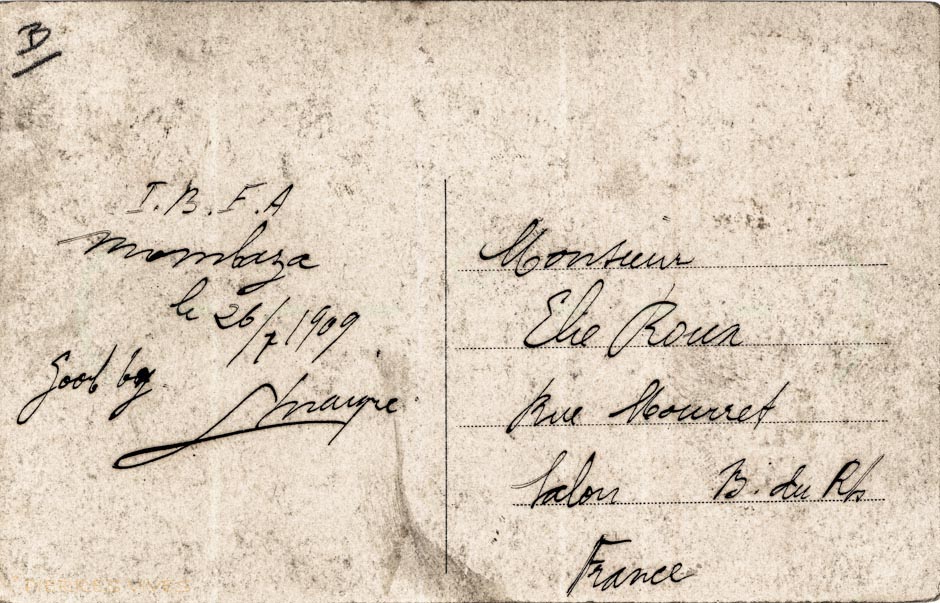 B
I.B.F.A
Mombaza
le 26/7 1909
Good by
Monsieur
Elie Roux
Rue Mourret
Salon B. du Rh
France